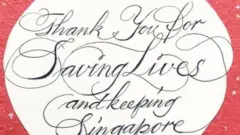 Thank You for
Saving Lives
and keeping
Singapore